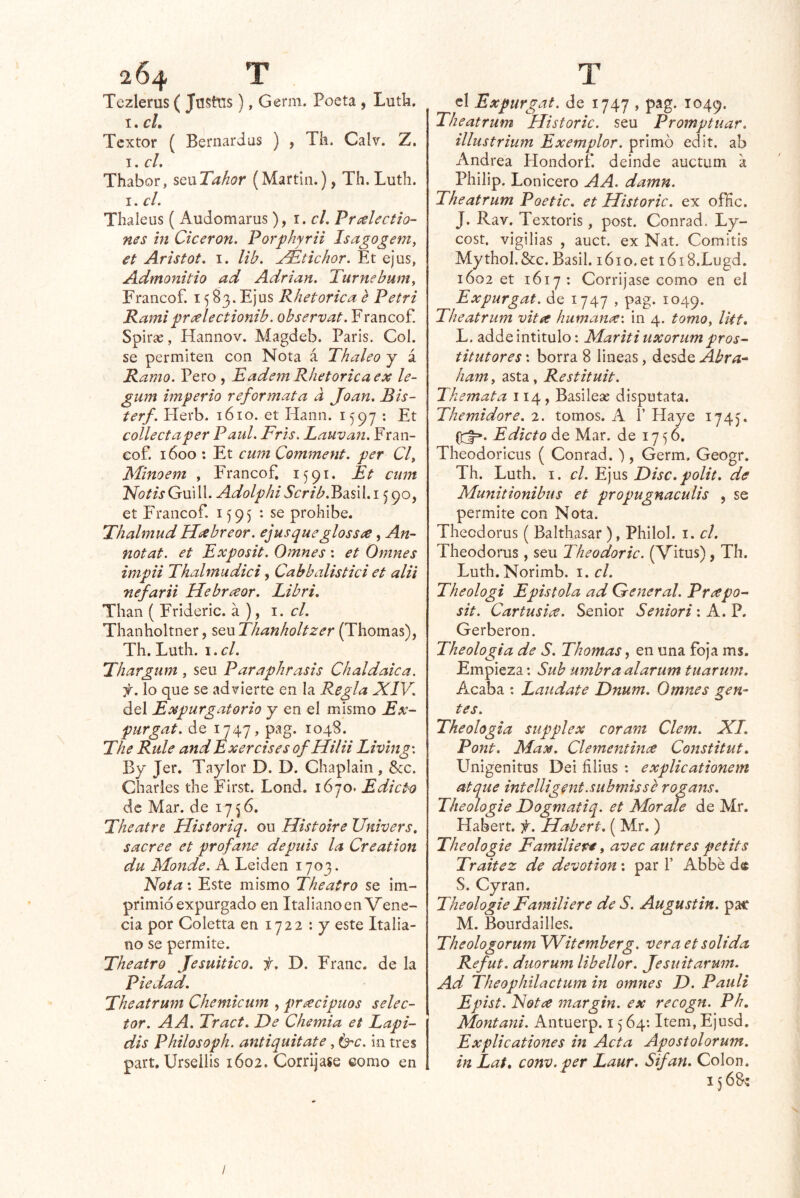 264 T
Tezlerus ( Justus ), Germ. Poeta , Luth.
1. cl.
Textor ( Bernardus ) , Th. Calv. Z.
1. cl.
Thabor, seu Tahor (Martin.), Th. Luth.
1. cl.
Thaleus ( Audomarus ), 1. cl. Prælectio-
nes in Ciceron. Porphyrii Isagogem,
et Aristot. 1. lib. Ætichor. Et ejus,
Admonitio ad Adrian. Turnebum,
Francof. 1583. Ejus Rhetorica è Petri
Rami prælectionib. observat. Francof.
Spiræ, Hannov. Magdeb. Paris. Col.
se permiten con Nota á Thaleo y á
Ramo. Pero , Eadem Rhetorica ex le-
gum imperio reformata à Joan. Bis-
terf. Herb. 1610. et Hann. 1597 : Et
collecta per Paul. Fris. Lauvan. Fran-
cof. 1600 : Et cum Comment. per Cl,
Minoem , Francof. 1591. Et cum
Notis Guill. Adolphi Scrib. Basil. 1590,
et Francof. 1595 : se prohibe.
Thalmud Hæbreor. ejusque glossæ , An-
notat. et Exposit. Omnes : et Omnes
impii Thalmudici , Cabbalistici et alii
nefarii Hebræor. Libri.
Than ( Frideric. à ), 1. cl.
Thanholtner, seu Thanholtzer (Thomas),
Th. Luth. 1. cl.
Thargum , seu Paraphrasis Chaldaica.
℣. lo que se advierte en la Regla XIV.
del Expurgatorio y en el mismo Ex-
purgat. de 1747, pag. 1048.
The Rule and Exercises of Hilii Living:
By Jer. Taylor D. D. Chaplain , &c.
Charles the First. Lond. 1670. Edicto
de Mar. de 1756.
Theatre Historiq. ou Histoire Univers.
sacree et profane depuis la Creation
du Monde. A Leiden 1703.
Nota : Este mismo Theatro se im-
primió expurgado en Italiano en Vene-
cia por Coletta en 1722 : y este Italia-
no se permite.
Theatro Jesuitico. ℣. D. Franc. de la
Piedad.
Theatrum Chemicum , præcipuos selec-
tor. AA. Tract. De Chemia et Lapi-
dis Philosoph. antiquitate , &c. in tres
part. Ursellis 1602. Corrijase como en
T
el Expurgat. de 1747 , pag. 1049.
Theatrum Historic. seu Promptuar.
illustrium Exemplor. primò edit. ab
Andrea Hondorf. deinde auctum à
Philip. Lonicero AA. damn.
Theatrum Poetic. et Historic. ex offic.
J. Rav. Textoris , post. Conrad. Ly-
cost. vigilias , auct. ex Nat. Comitis
Mythol. &c. Basil. 1610. et 1618. Lugd.
1602 et 1617 : Corrijase como en el
Expurgat. de 1747 , pag. 1049.
Theatrum vitæ humanæ: in 4. tomo, litt.
L. adde intitulo : Mariti uxorum pros-
titutores : borra 8 lineas, desde Abra-
ham, asta , Restituit.
Themata 114 , Basileæ disputata.
Themidore. 2. tomos. A l' Haye 1745.
☞. Edicto de Mar. de 1756.
Theodoricus ( Conrad. ), Germ. Geogr.
Th. Luth. 1. cl. Ejus Disc. polit. de
Munitionibus et propugnaculis , se
permite con Nota.
Theodorus ( Balthasar ), Philol. 1. cl.
Theodorus , seu Theodoric. (Vitus) , Th.
Luth. Norimb. 1. cl.
Theologi Epistola ad General. Præpo-
sit. Cartusiæ. Senior Seniori : A. P.
Gerberon.
Theologia de S. Thomas , en una foja ms.
Empieza : Sub umbra alarum tuarum.
Acaba : Laudate Dnum. Omnes gen-
tes.
Theologia supplex coram Clem. XI.
Pont. Max. Clementinæ Constitut.
Unigenitus Dei filius : explicationem
atque intelligent. submissè rogans.
Theologie Dogmatiq. et Morale de Mr.
Habert. ℣. Habert. ( Mr. )
Theologie Familiere , avec autres petits
Traitez de devotion : par l' Abbè de
S. Cyran.
Theologie Familiere de S. Augustin. par
M. Bourdailles.
Theologorum Witemberg. vera et solida
Refut. duorum libellor. Jesuitarum.
Ad Theophilactum in omnes D. Pauli
Epist. Notæ margin. ex recogn. Ph.
Montani. Antuerp. 1564: Item, Ejusd.
Explicationes in Acta Apostolorum.
in Lat. conv. per Laur. Sifan. Colon.
1568: